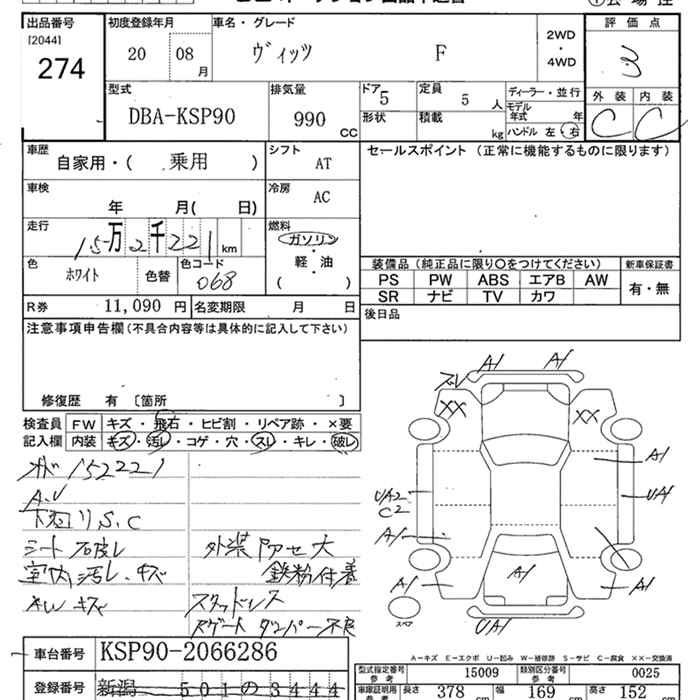 出品番号 初度登録年月 車名・グレード 評価点
[2044]
274 20 08月 ヴィッツ F 2WD・4WD 3
型式 排気量 ドア 5 定員 5人 ディーラー・並行 外装 内装
DBA-KSP90 990 CC 形状 積載 kg モデル年式 年 C C
ハンドル 左・右
車歴 自家用・(乗用) シフト AT セールスポイント(正常に機能するものに限ります)
車検 年 月(日) 冷房 AC
走行 15万2千221km 燃料 ガソリン
軽・油
( )
色 ホワイト 色替 色コード 068 装備品(純正品に限り○をつけてください) 新車保証書
PS PW ABS エアB AW 有・無
SR ナビ TV カワ
R券 11,090円 名変期限 月 日 後日品
注意事項申告欄(不具合内容等は具体的に記入して下さい)
修復歴 有〔箇所 〕
検査員 FW キズ・飛石・ヒビ割・リペア跡・×要
記入欄 内装 キズ・汚レ・コゲ・穴・スレ・キレ・破レ
152221
A.V
下廻リ S.C
シート 破レ 外装 大
室内汚レ、キズ 鉄粉付着
AW キズ スタッドレス
ダンパー不良
A1 A1
XX XX
A1
UA2 UA1
C2
A1
A1 A1 A1
スペア
UA1
A−キズ E−エクボ U−凹み W−補修跡 S−サビ C−腐食 ××−交換済
車台番号 KSP90-2066286
型式指定番号 参考 15009 類別区分番号 参考 0025
登録番号 新潟 501の3444
車庫証明用 参考 長さ 378 cm 幅 169 cm 高さ 152 cm